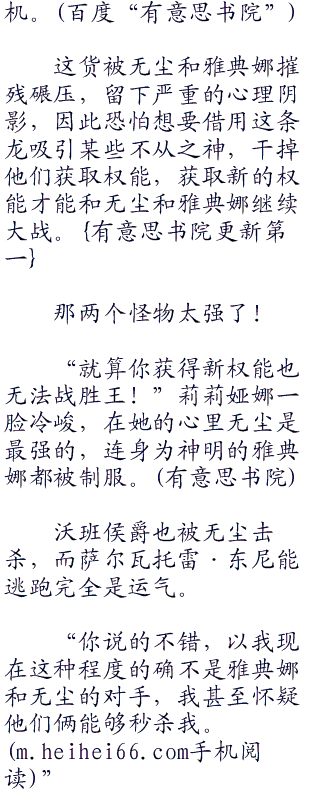 机。(百度“有意思书院”)
这货被无尘和雅典娜摧
残碾压，留下严重的心理阴
影，因此恐怕想要借用这条
龙吸引某些不从之神，干掉
他们获取权能，获取新的权
能才能和无尘和雅典娜继续
大战。{有意思书院更新第
一}
那两个怪物太强了！
“就算你获得新权能也
无法战胜王！”莉莉娅娜一
脸冷峻，在她的心里无尘是
最强的，连身为神明的雅典
娜都被制服。(有意思书院)
沃班侯爵也被无尘击
杀，而萨尔瓦托雷·东尼能
逃跑完全是运气。
“你说的不错，以我现
在这种程度的确不是雅典娜
和无尘的对手，我甚至怀疑
他们俩能够秒杀我。
(m.heihei66.com手机阅
读)”